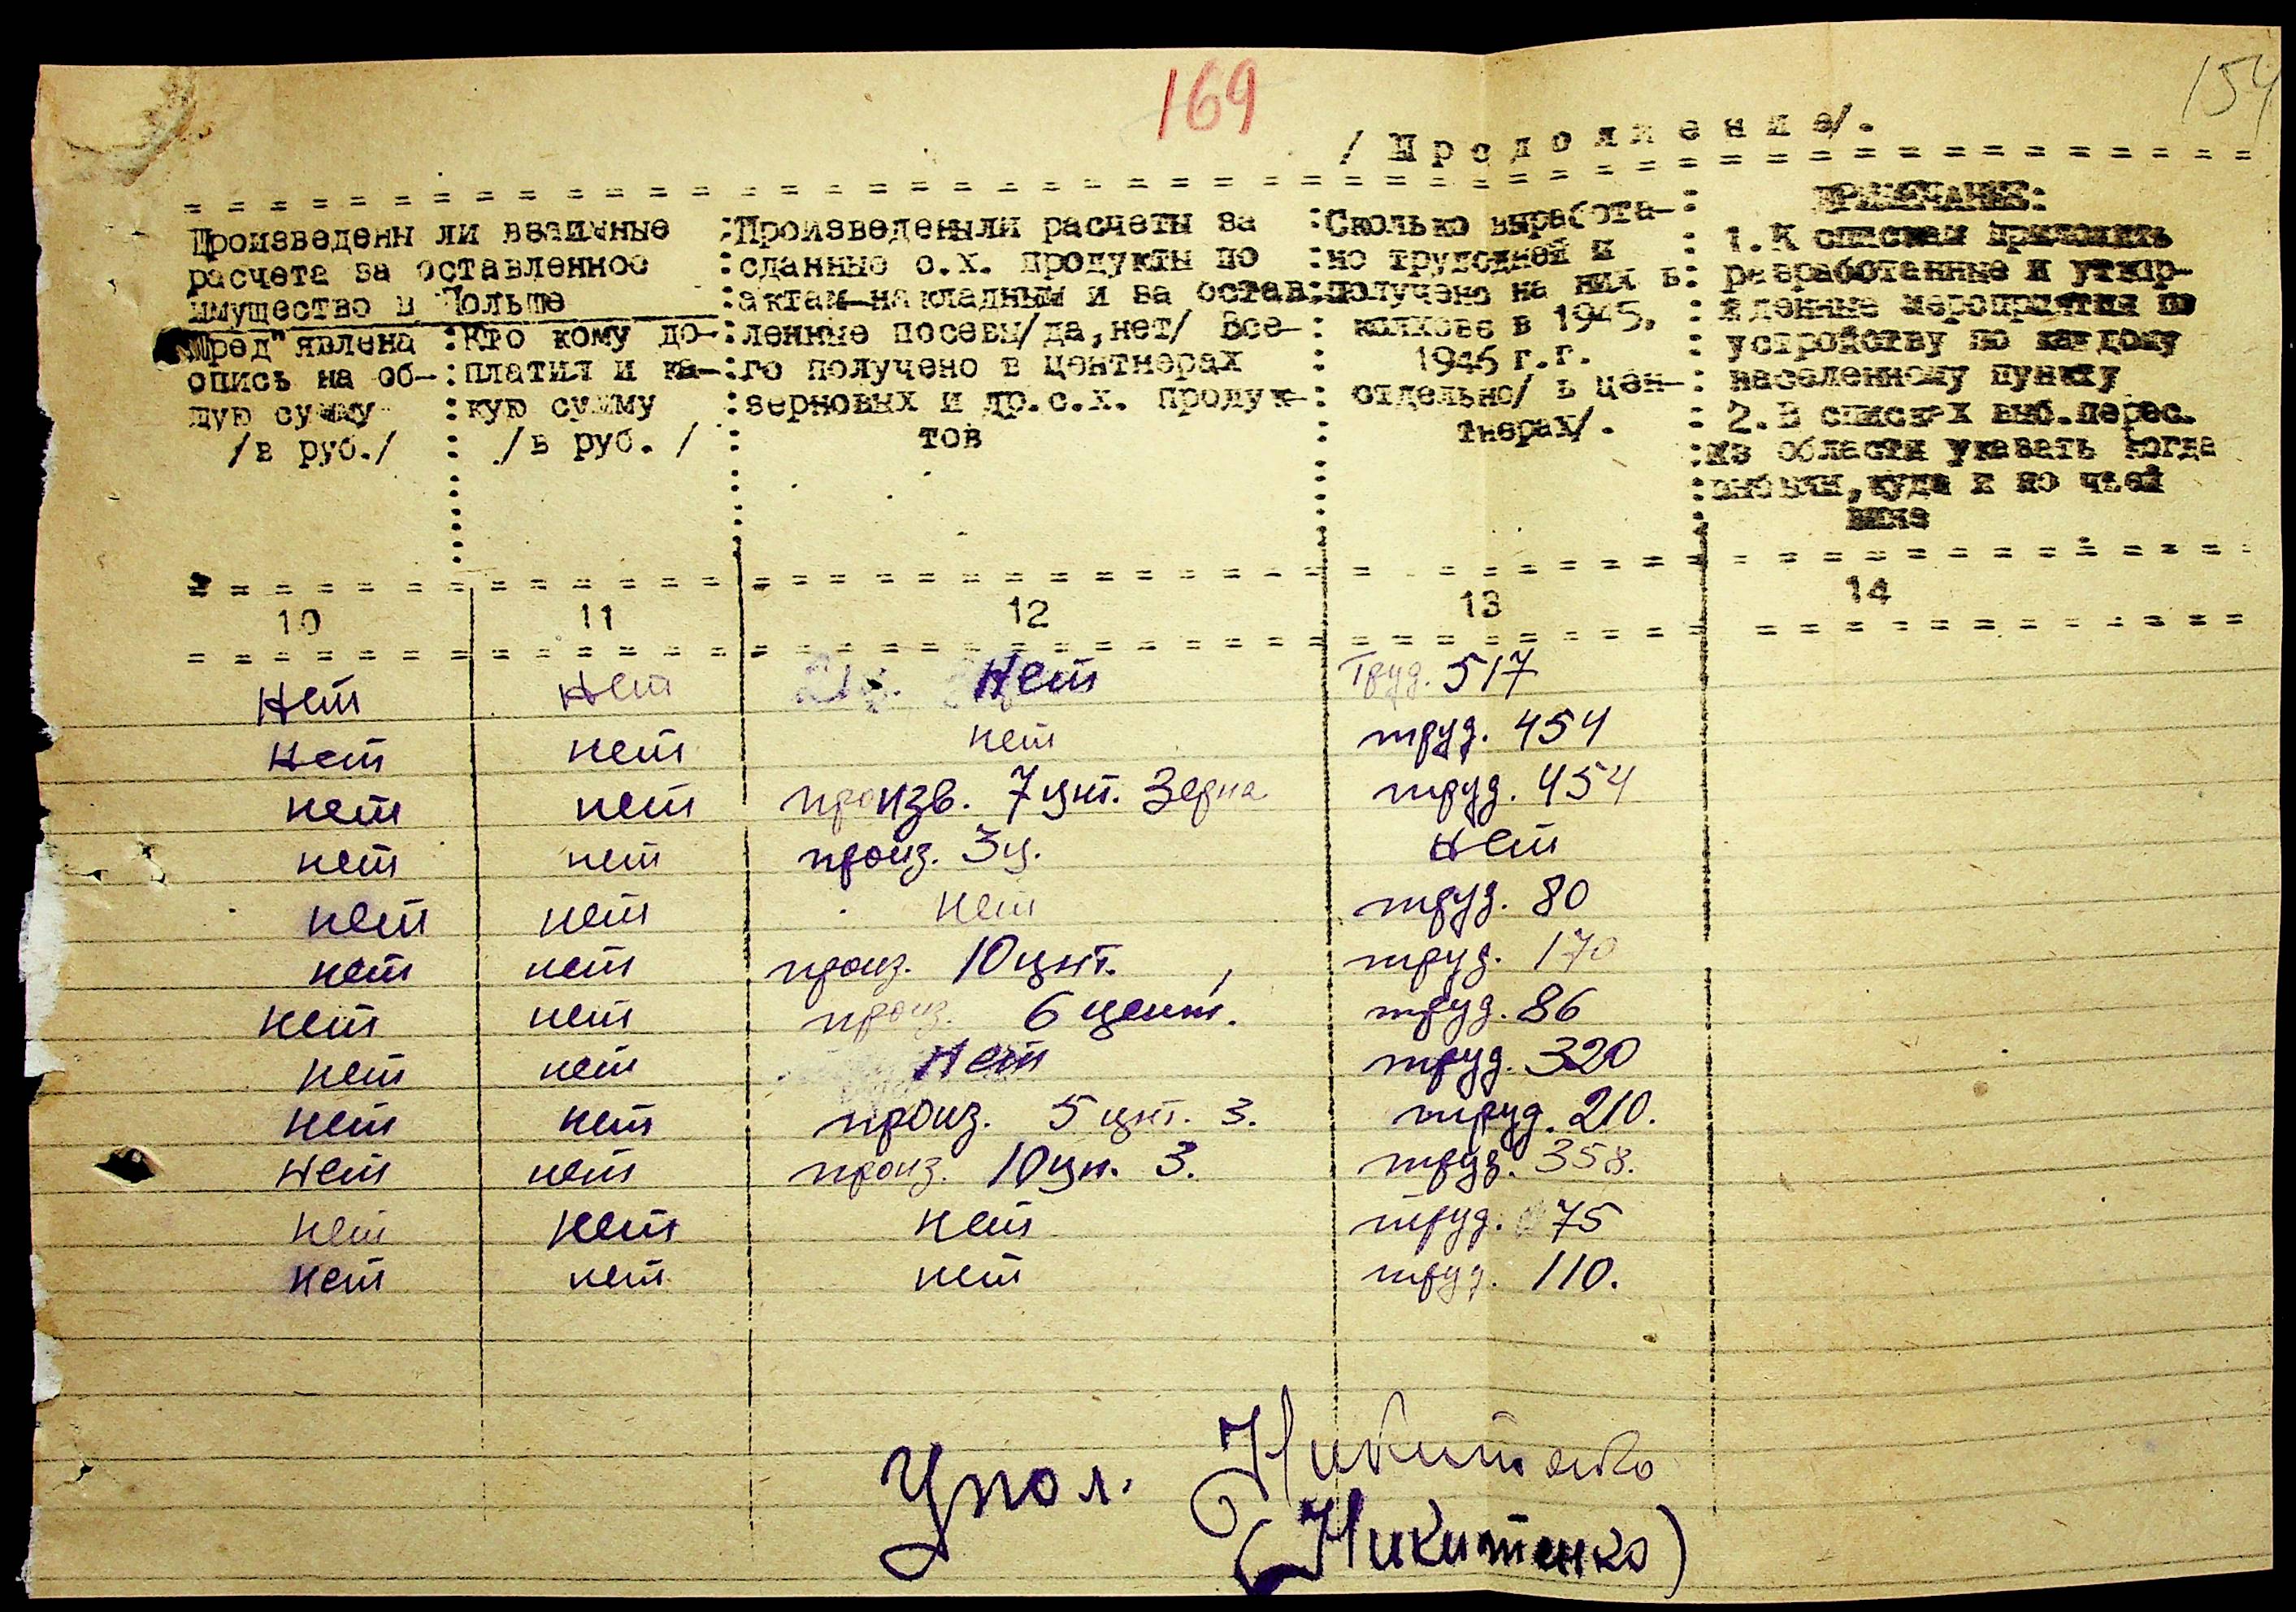 169
154
/ П р о д о л ж е н и е/.
Произведены ли взаимные :Произведены ли расчеты за :Сколько выработа-: ПРИМЕЧАНИЕ:
расчета за оставленное :сданные с.х. продукты по :но трудодней и : 1. К спискам приложить
имущество в Польше :актам-накладным и за остав:получено на них в: разработанные и утвер-
Пред"явлена :Кто кому до-:ленные посевы/да,нет/ Все-: колхозе в 1945, : жденные мероприятия по
опись на об-:платил и ка-:го получено в центнерах : 1946 г.г. : устройству по каждому
щую сумму :кую сумму :зерновых и др.с.х. продук-: отдельно/ в цен-: населенному пункту
/в руб./ : /в руб. / : тов : тнерах/. : 2. В списках выб.перес.
:из области указать когда
:выбыли,куда и по чьей
вине
10 11 12 13 14
Нет Нет Нет Труд. 517
Нет нет нет труд. 454
нет нет произв. 7 цнт. Зерна труд. 454
нет нет произ. 3 ц. Нет
нет нет нет труд. 80
нет нет произ. 10 цнт. труд. 170
нет нет произ. 6 цент. труд. 86
нет нет Нет труд. 320
нет нет произ. 5 цнт. З. труд. 210.
нет нет произ. 10 цн. З. труд. 358.
нет нет нет труд. 75
нет нет нет труд. 110.
Упол. Никитенко
(Никитенко)